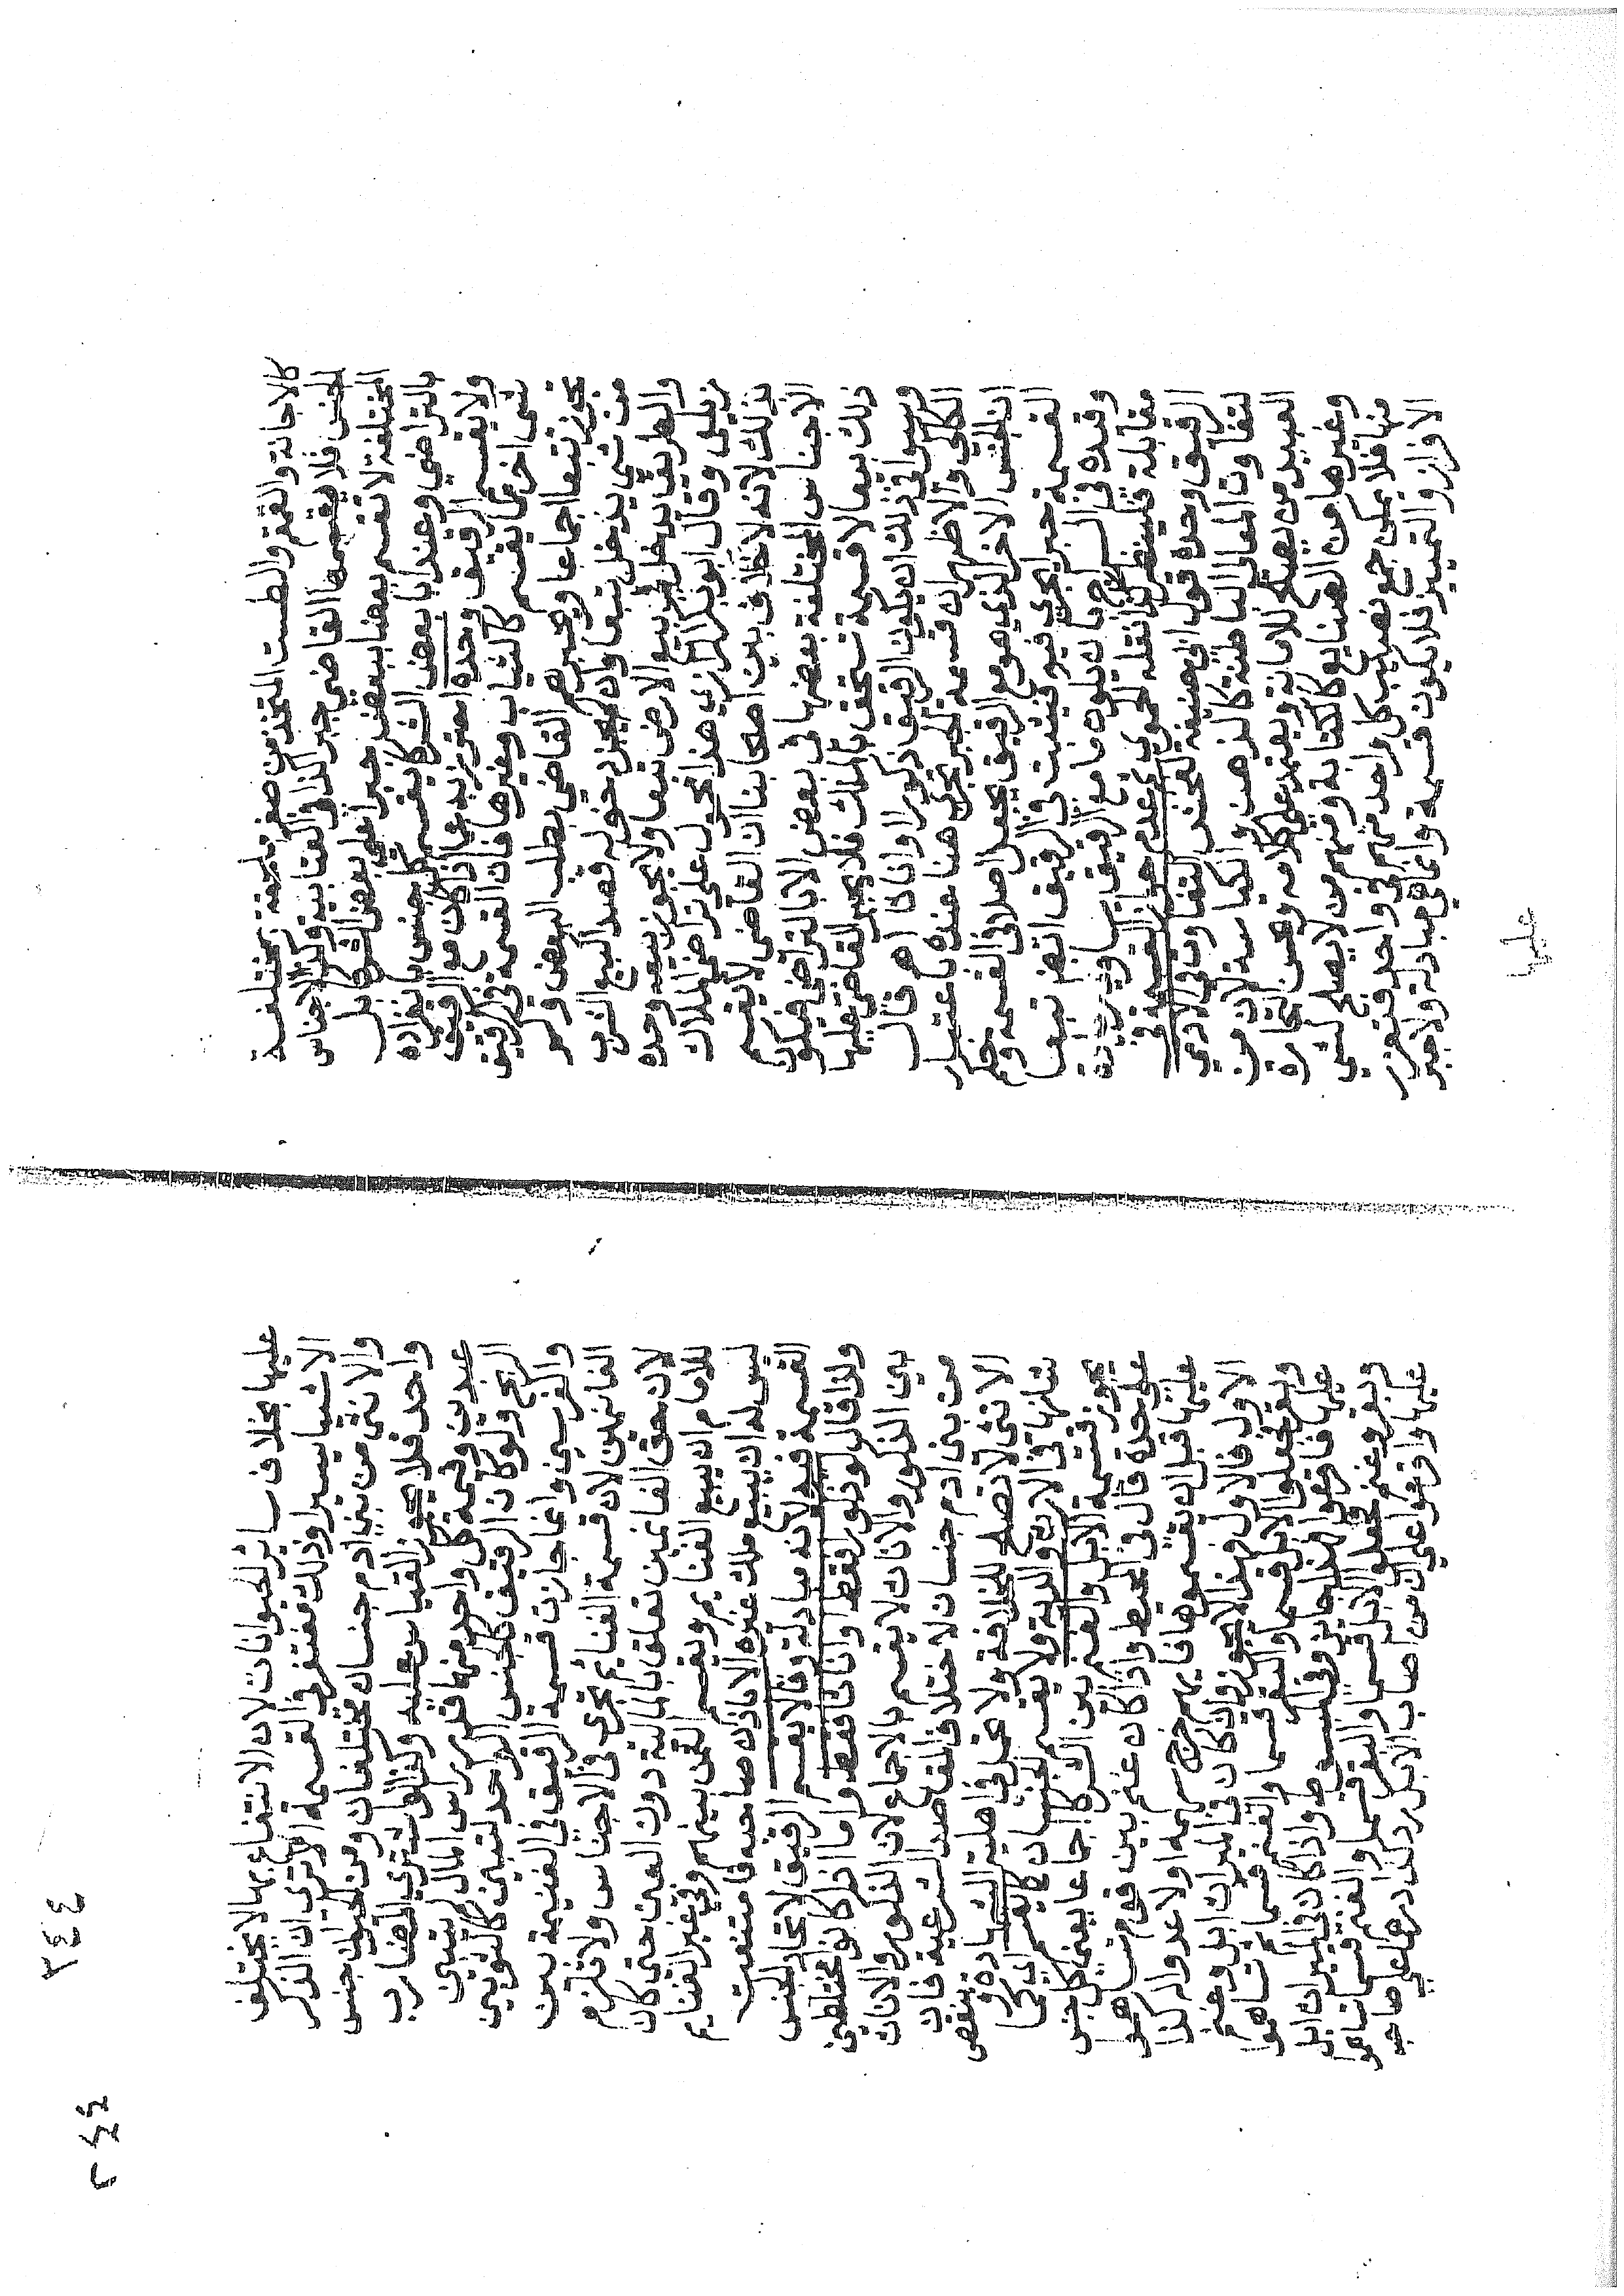 كالاجانة والقمقم والطست المتخذ من صفر ملحقة بمختلفة
الجنس فلا يقسمها القاضي جبرا كذا في العناية وكذا الاجناس
المختلفة لا تقسم بعضا ببعض جبرا على بعض الشركا بل
بالتراضي وعند ابا بعض الشركا يقسم كل جنس بانفراده
ولا يقسم الرقيق وحده احترز به عما اذا كان مع الرقيق
شي اخر مما يقسم كالثياب وغيرها فان القسمة في الرقيق
تجوز تبعا اجماعا ويجبرهم القاضي بطلب البعض وكم
من شي يدخل تبعا وان لم يجز دخوله قصدا كبيع الشرب
والطريق يدخل في بيع الارض تبعا ولا يجوز بيعه وحده
زيلعي وقال ابو بكر الرازي هذا محمول على تراضي الملاك
بذلك لانه لا خلاف بين اصحابنا ان القاضي لا يقسم
الاجناس المختلفة بعضها في بعض الا بالتراضي فيكون
ذلك بيعا لا قسمة تستحق بالملك فلا يجبر القاضي عليها
وسوا في ذلك ان يكون الرقيق ذكورا او اناثا اهـ قال
الكاكي والاظهر ان قسمة الجبر تجري هنا عنده باعتبار
ان الجنس الاخر الذي هو مع الرقيق يجعل اصلا في القسمة وحكم
القسمة جبرا يجري فيه فيثبت في الرقيق ايضا تبعا
وقيده في السراج بان يكون ما مع الرقيق يساويه
مقابلة فلينظر كذا نقله الحموي وعدم جواز القسمة في
الرقيق وحده قول ابي حنيفة لفحش التفاوت في الادمي
لتفاوت المعاني الباطنة كالذهن والكياسة لان من
العبيد من يصلح للامانة ويعتمد على كلامه وحسن التجارة
وغيرها من الصنايع كالكتابة ومنهم من لا يصلح لشي
منها فلا يمكن جمع نصيب كل واحد منهم في واحد فتعذر
الافراز والتمييز فلا يكون قسمة وانما هي مبادلة ولا جبر
عليها
٢٤٤
٢٤٤
عليها بخلاف ساير الحيوانات لان الانتفاع بها لا يختلف
الا شيا يسيرا وذلك مغتفر في القسمة الا ترى ان الذكر
والانثى من بني ادم جنسان مختلفان ومن الحيوان جنس
واحد فلا يجوز القياس عليه وكذا لو اشترى المضارب
عبدين وقيمة كل واحد منها قدر راس المال لم يتبين
الربح ولو كان الرقيق كالجنس الواحد لتبين كالثوبين
والفرسين وانما جازت قسمة الرقيق في الغنيمة بين
الغانمين لان قسمة الغنايم تجري في الاجناس ولا تلزم
لان حق الغانمين تعلق بالمالية دون العين حتى كان
للامام ان يبيع الغنايم ويقسم الثمن بينهم وفي غير الغنايم
ليس له ان يبيع ملك غيره الا باذن صاحبه فامتنعت
القسمة فيه لانه مبادلة وقالا يقسم الرقيق لاتحاد الجنس
ولذا قال لو ذكورا فقط او اناثا فقط واما اذا كانوا مختلطين
بين الذكور والاناث لا يقسم بالاجماع لان الذكور والاناث
من بني ادم جنسان لاختلاف المقاصد الشرعية فان
الانثى لا تصلح للخلافة ولا تحمل اهلية الشهادة وتنقص
شهادتها في الارث والدية ولا يقسم الجنسان كما يقسم اي كما
يجوز قسمة الابل والغنم بين الشركا اجماعا يعني كل جنس
على حدة قال في المحيط واذا كان غنم بين قوم تساهموا
عليها قبل ان يقسموها فايهم خرج سهمه اولا عدوا له كذا
الاول فالاول فهذا لا يجوز وان كان في الميراث ابل وغنم
وبقر فجعلوا الابل قسما والبقر قسما والغنم قسما ثم تساهموا
عليها فاقرعوا فهذا جايز وفي المبسوط واذا كان في الميراث ابل
وبقر وغنم فجعلوا الابل قسما والبقر قسما والغنم قسما تساهموا
عليها واقرعوا على ان من اصاب الابل رد كذا درهما على صاحبه